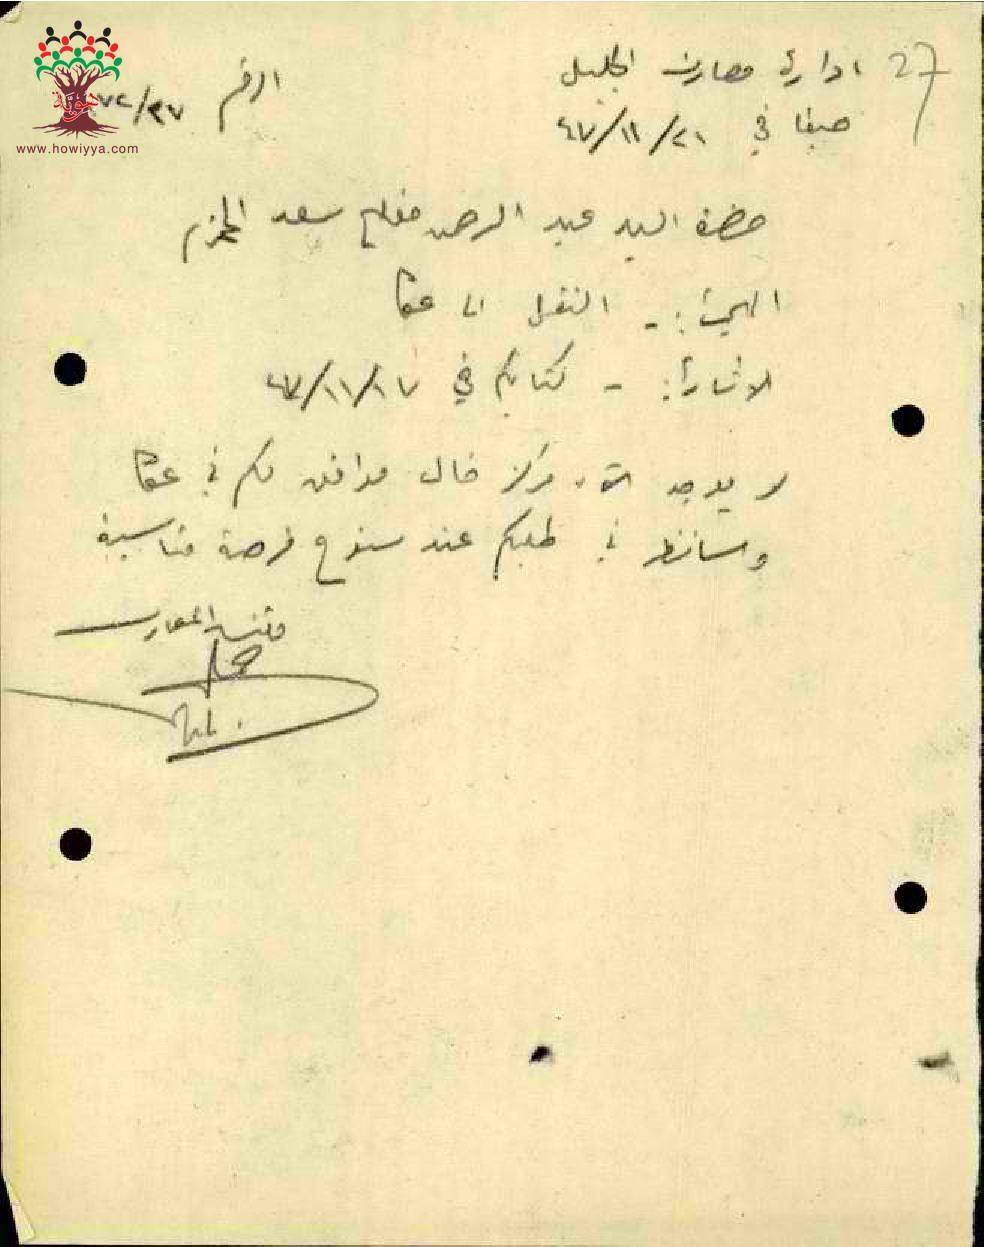 27
ادارة معارف الجليل
صفد في ٢١/١١/٤٧
الرقم ٧٢/٣٧
هوية
www.howiyya.com
حضرة السيد عبد الرحمن مفلح سعد المحترم
المبحث :- النقل الى عكا
الاشارة :- كتابكم في ١٧/١١/٤٧
لا يوجد الآن مركز خال موافق لكم في عكا
وسأنظر في طلبكم عند سنوح فرصة مناسبة
مفتش المعارف